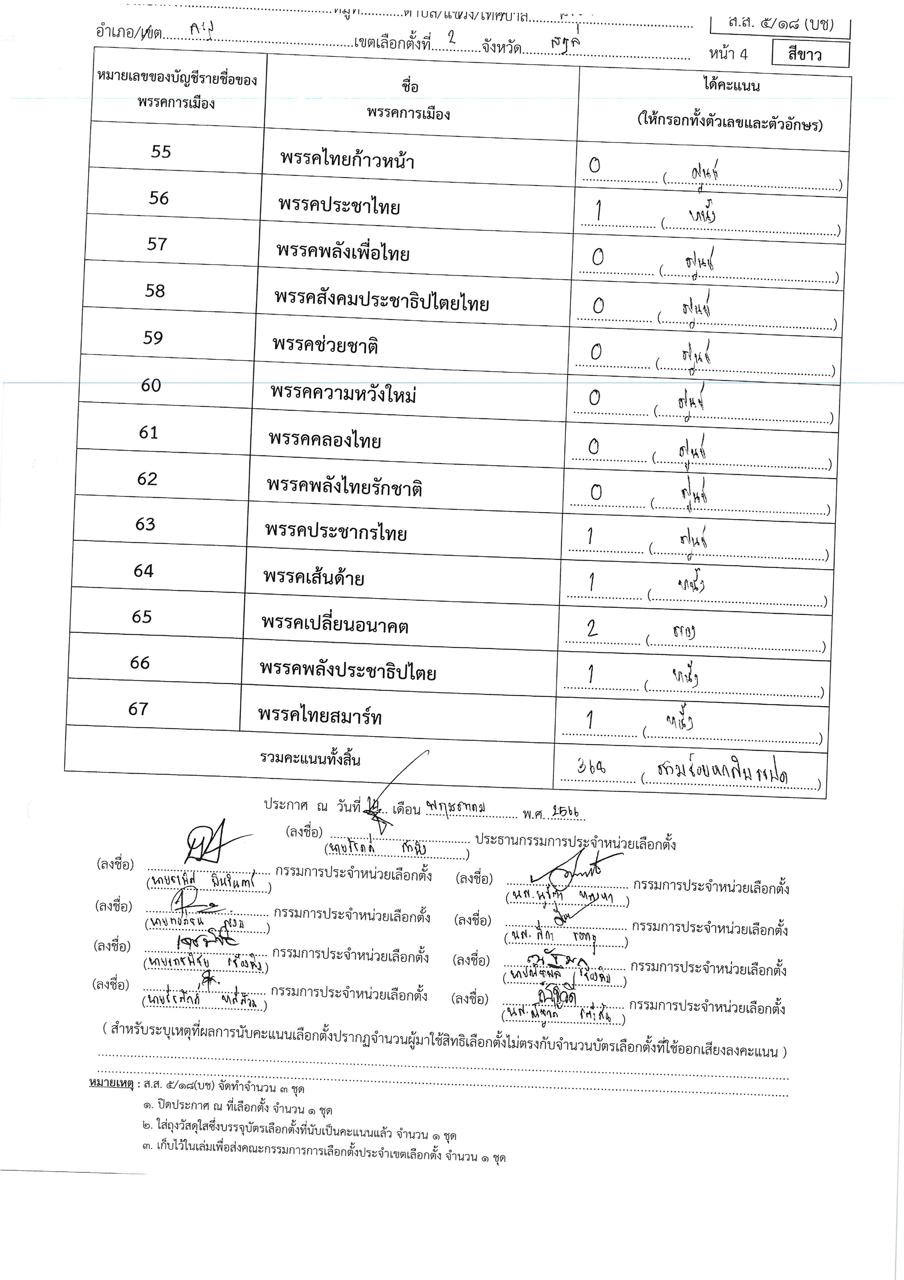 หมู่ที่ ตำบล/แขวง/เทศบาล ส.ส. ๕/๑๘ (บช)
อำเภอ/เขต เขตเลือกตั้งที่ 2 จังหวัด หน้า 4 สีขาว
หมายเลขของบัญชีรายชื่อของพรรคการเมือง ชื่อพรรคการเมือง ได้คะแนน (ให้กรอกทั้งตัวเลขและตัวอักษร)
55 พรรคไทยก้าวหน้า 0 (ศูนย์)
56 พรรคประชาไทย 1 (หนึ่ง)
57 พรรคพลังเพื่อไทย 0 (ศูนย์)
58 พรรคสังคมประชาธิปไตยไทย 0 (ศูนย์)
59 พรรคช่วยชาติ 0 (ศูนย์)
60 พรรคความหวังใหม่ 0 (ศูนย์)
61 พรรคคลองไทย 0 (ศูนย์)
62 พรรคพลังไทยรักชาติ 0 (ศูนย์)
63 พรรคประชากรไทย 1 (ศูนย์)
64 พรรคเส้นด้าย 1 (หนึ่ง)
65 พรรคเปลี่ยนอนาคต 2 (สอง)
66 พรรคพลังประชาธิปไตย 1 (หนึ่ง)
67 พรรคไทยสมาร์ท 1 (หนึ่ง)
รวมคะแนนทั้งสิ้น 368 (สามร้อยหกสิบแปด)
ประกาศ ณ วันที่ เดือน พฤษภาคม พ.ศ. 2566
(ลงชื่อ) ประธานกรรมการประจำหน่วยเลือกตั้ง
(ลงชื่อ) กรรมการประจำหน่วยเลือกตั้ง (ลงชื่อ) กรรมการประจำหน่วยเลือกตั้ง
(ลงชื่อ) กรรมการประจำหน่วยเลือกตั้ง (ลงชื่อ) กรรมการประจำหน่วยเลือกตั้ง
(ลงชื่อ) กรรมการประจำหน่วยเลือกตั้ง (ลงชื่อ) กรรมการประจำหน่วยเลือกตั้ง
(ลงชื่อ) กรรมการประจำหน่วยเลือกตั้ง (ลงชื่อ) กรรมการประจำหน่วยเลือกตั้ง
( สำหรับระบุเหตุที่ผลการนับคะแนนเลือกตั้งปรากฏจำนวนผู้มาใช้สิทธิเลือกตั้งไม่ตรงกับจำนวนบัตรเลือกตั้งที่ใช้ออกเสียงลงคะแนน )
หมายเหตุ : ส.ส. ๕/๑๘(บช) จัดทำจำนวน ๓ ชุด
๑. ปิดประกาศ ณ ที่เลือกตั้ง จำนวน ๑ ชุด
๒. ใส่ถุงวัสดุใสซึ่งบรรจุบัตรเลือกตั้งที่นับเป็นคะแนนแล้ว จำนวน ๑ ชุด
๓. เก็บไว้ในเล่มเพื่อส่งคณะกรรมการการเลือกตั้งประจำเขตเลือกตั้ง จำนวน ๑ ชุด